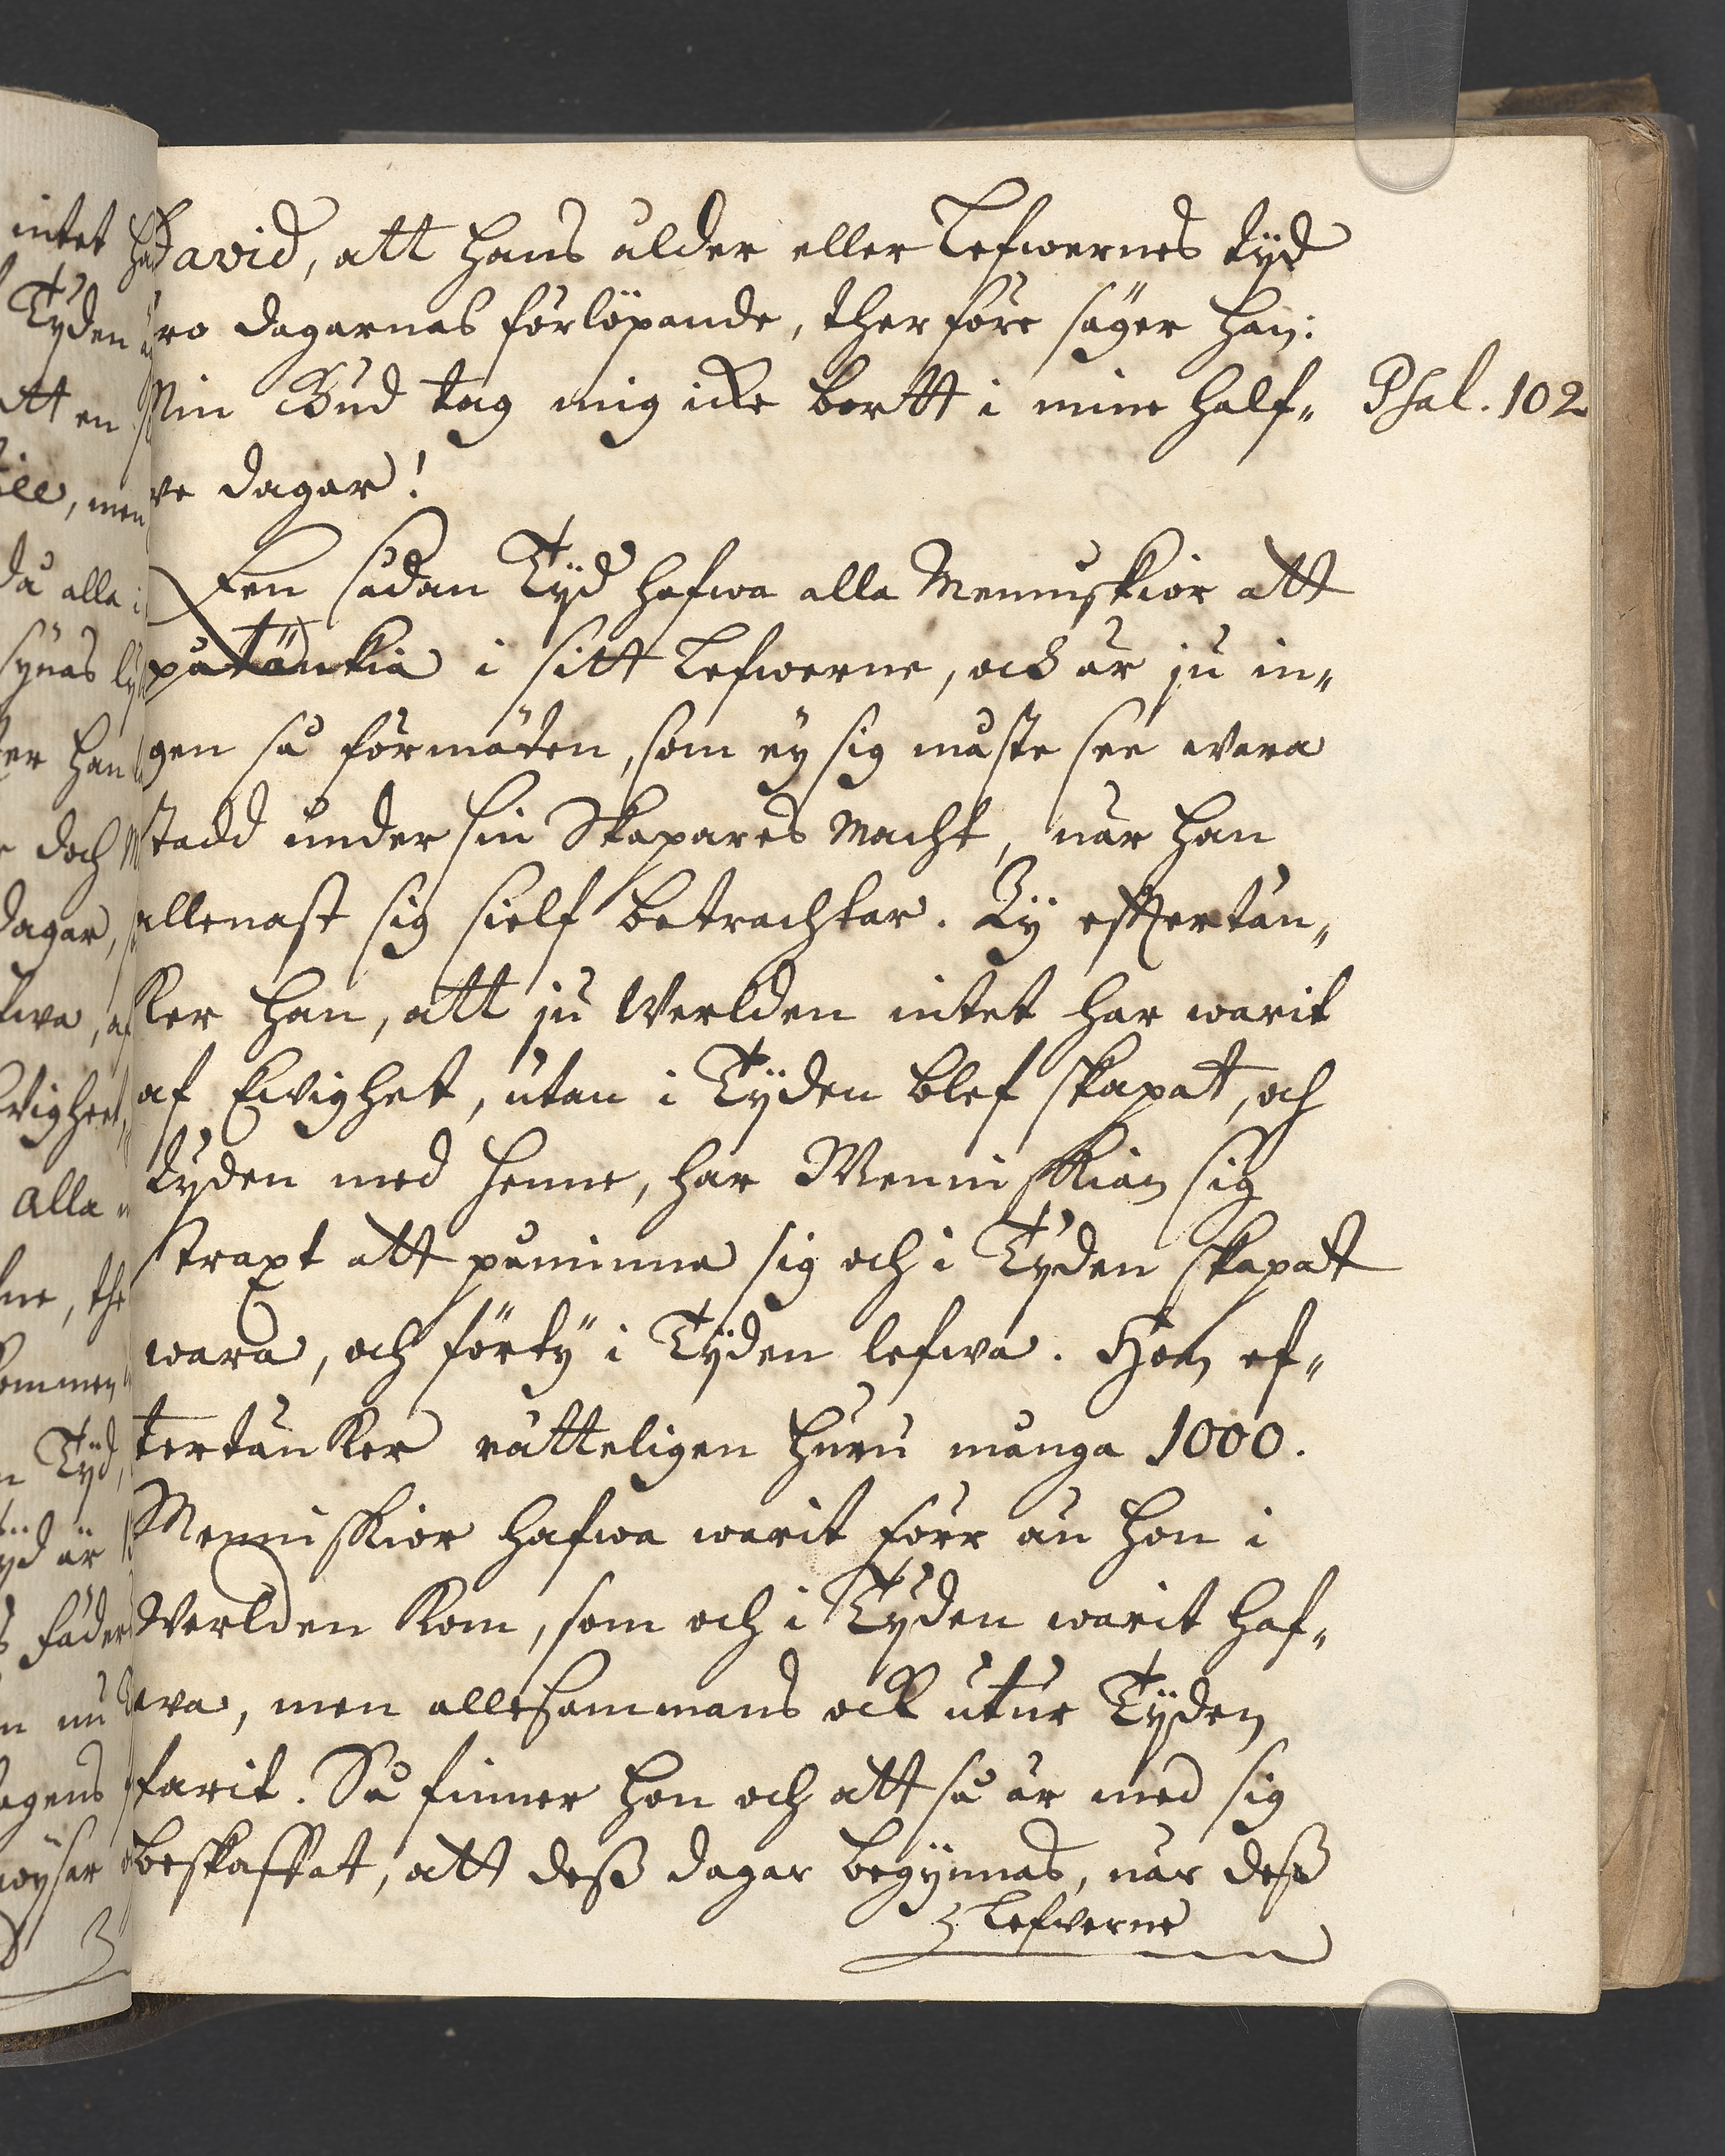 David, att hans ålder eller Lefwernes tÿd
äro dagarnas förlöpande, ther före säger han:
Min Gud tag mig icke bortt i mine half- Psal. 102
ve dagar!
Een sådan Tÿd hafwa alla Menniskior att
påtänkia i sitt Lefwerne, och är ju in-
gen så förmäten, som eÿ sig måste see wara
stadd under sin Skapares Macht, när han
allenast sig sielf betrachtar. Tÿ effertän-
ker han, att ju Werlden intet har warit
af Ewighet, utan i Tÿden blef skapat, och
tÿden med henne, har Menniskian sig
straxt att påminna sig och i Tÿden skapat
wara, och förtÿ i Tÿden lefwa. Hon ef-
tertänker rätteligen huru många 1000.
Menniskior hafwa warit förr än hon i
Werlden kom, som och i Tÿden warit haf-
wa, men allesammans ock utur Tÿden
farit. Så finner hon och att så är med sig
beskaffat, att deß dagar begÿnnas, när deß
Lefwerne